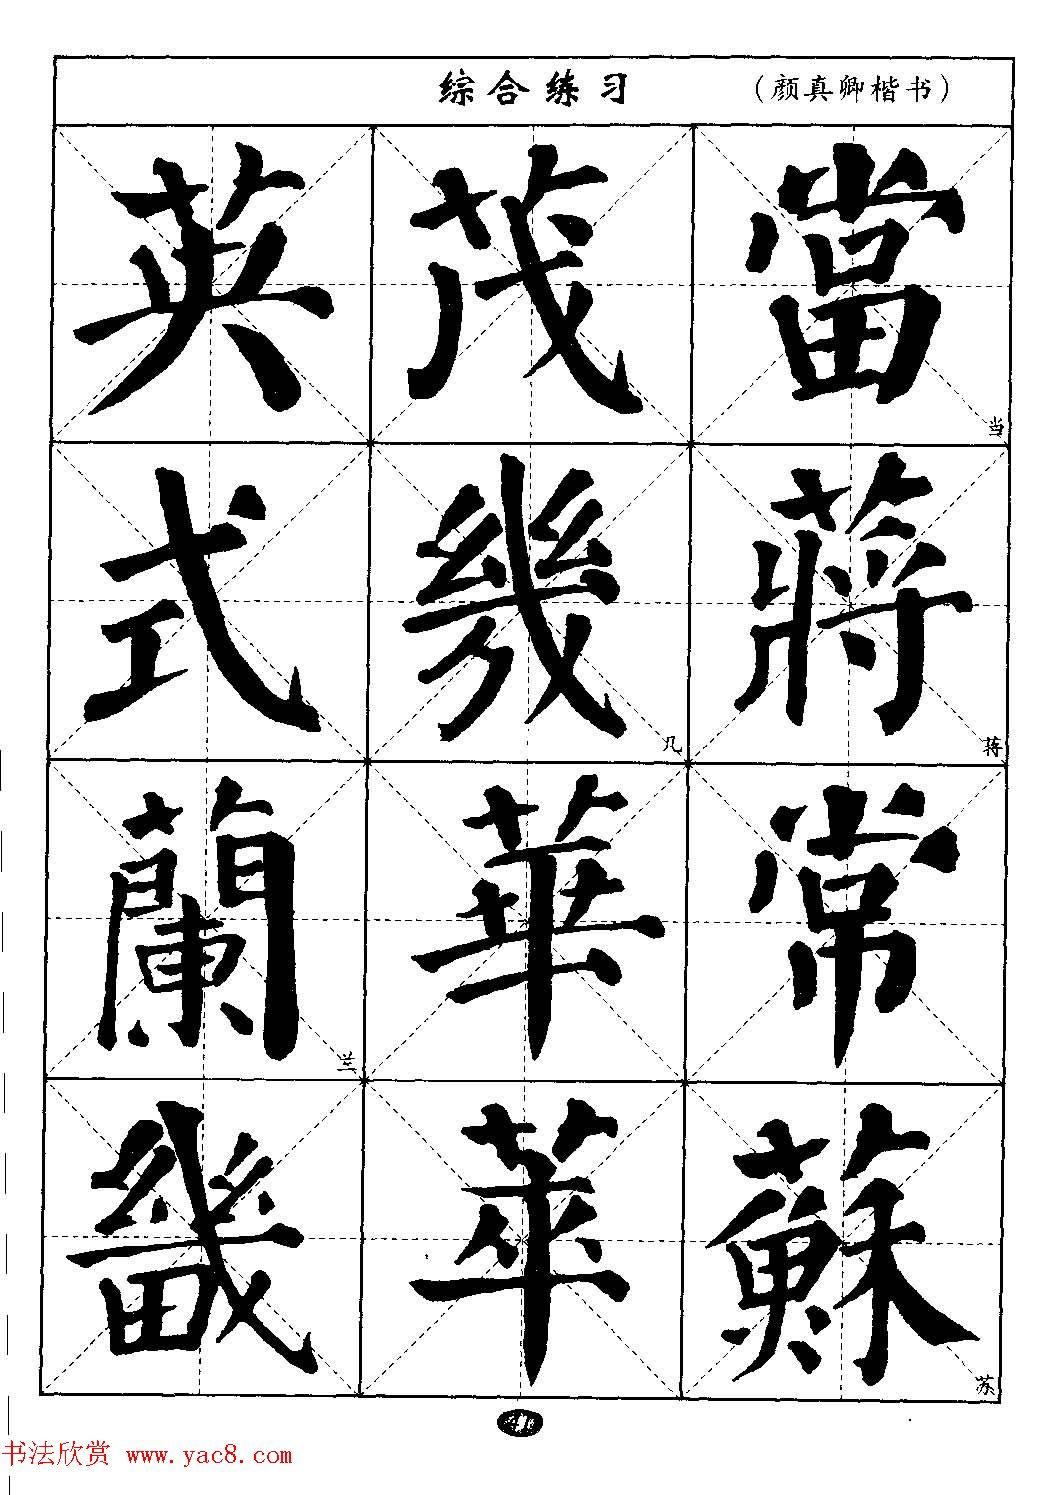 综合练习 （颜真卿楷书）
英 茂 當 当
式 幾 几 蔣 蒋
蘭 兰 華 常
畿 萃 蘇 苏
41
书法欣赏 www.yac8.com